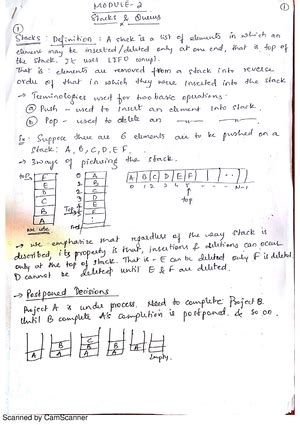 MODULE-2
Stacks & Queues
①
①
Stacks: Definition: A stack is a list of elements in which an
element may be inserted/deleted only at one end, that is top of
the stack. It uses LIFO
That is: elements are removed from a stack into reverse
order of that in which they were inserted into the stack
→ Terminologies used for two basic operations:-
ⓐ Push - used to insert an element into stack.
ⓑ Pop - used to delete an
Ex: Suppose there are 6 elements are to be pushed on a
stack: A, B, C, D, E, F.
→ 3 ways of picturing the stack.
top F E D C B A
we use
0 A
1 B
2 C
3 D
4 E
5 F
A B C D E F - - -
0 1 2 3 4 5 - - - N-1
top
→ We emphasize that regardless of the way stack is
described, its property is that, insertions & deletions can occur
only at the top of stack. That is - E can be deleted only F is deleted
D cannot be deleted until E & F are deleted.
→ Postponed Decisions
Project A is under process. Need to complete Project B.
Until B complete A's completion is postponed. & so on.
A
B A
C B A
B A
A
Empty.
Scanned by CamScanner